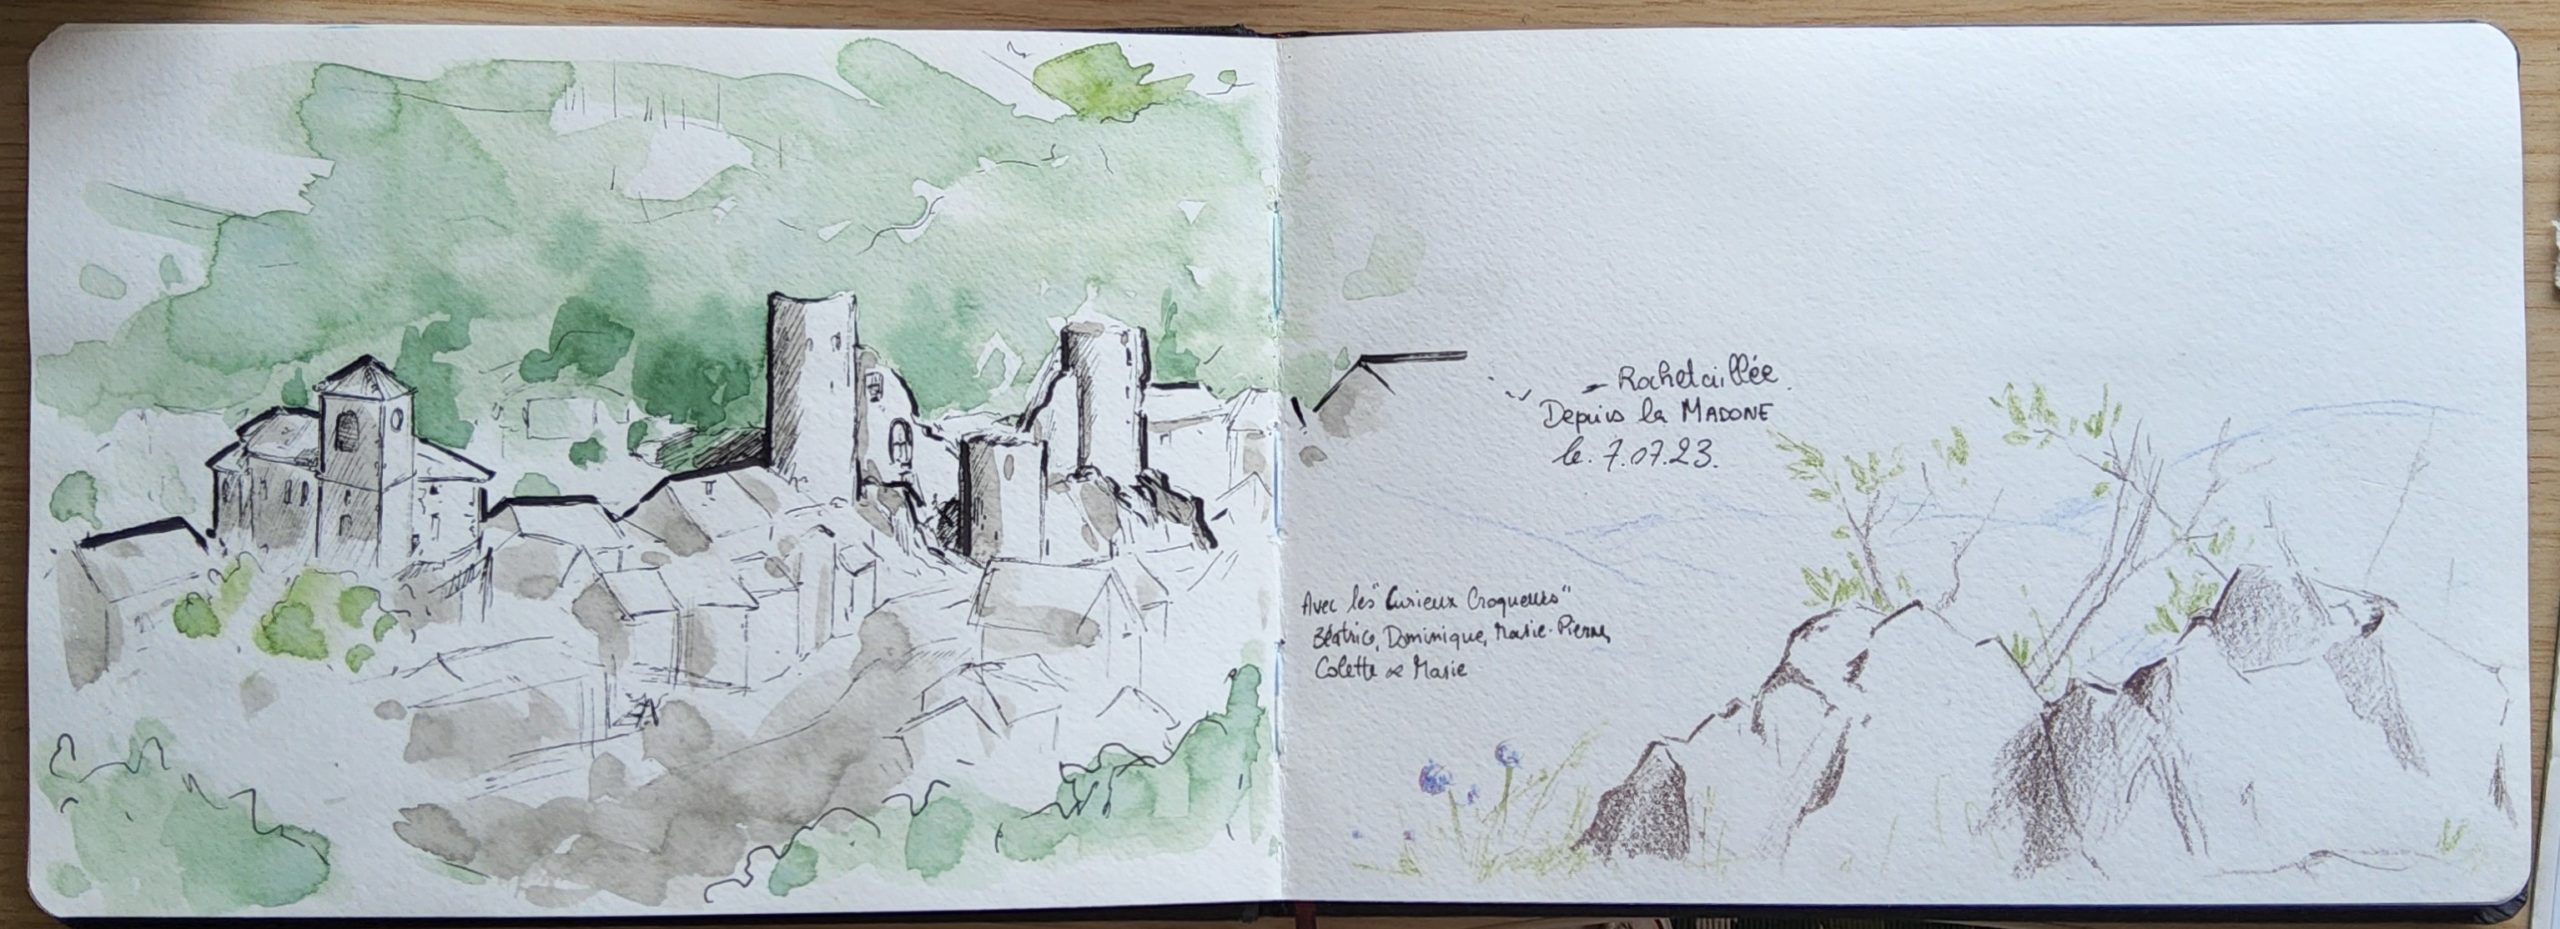 Rochetaillée.
Depuis la MADONE
le. 7.07.23.
Avec les "Curieux Croqueurs"
Béatrice, Dominique, Marie-Pierre,
Colette & Marie